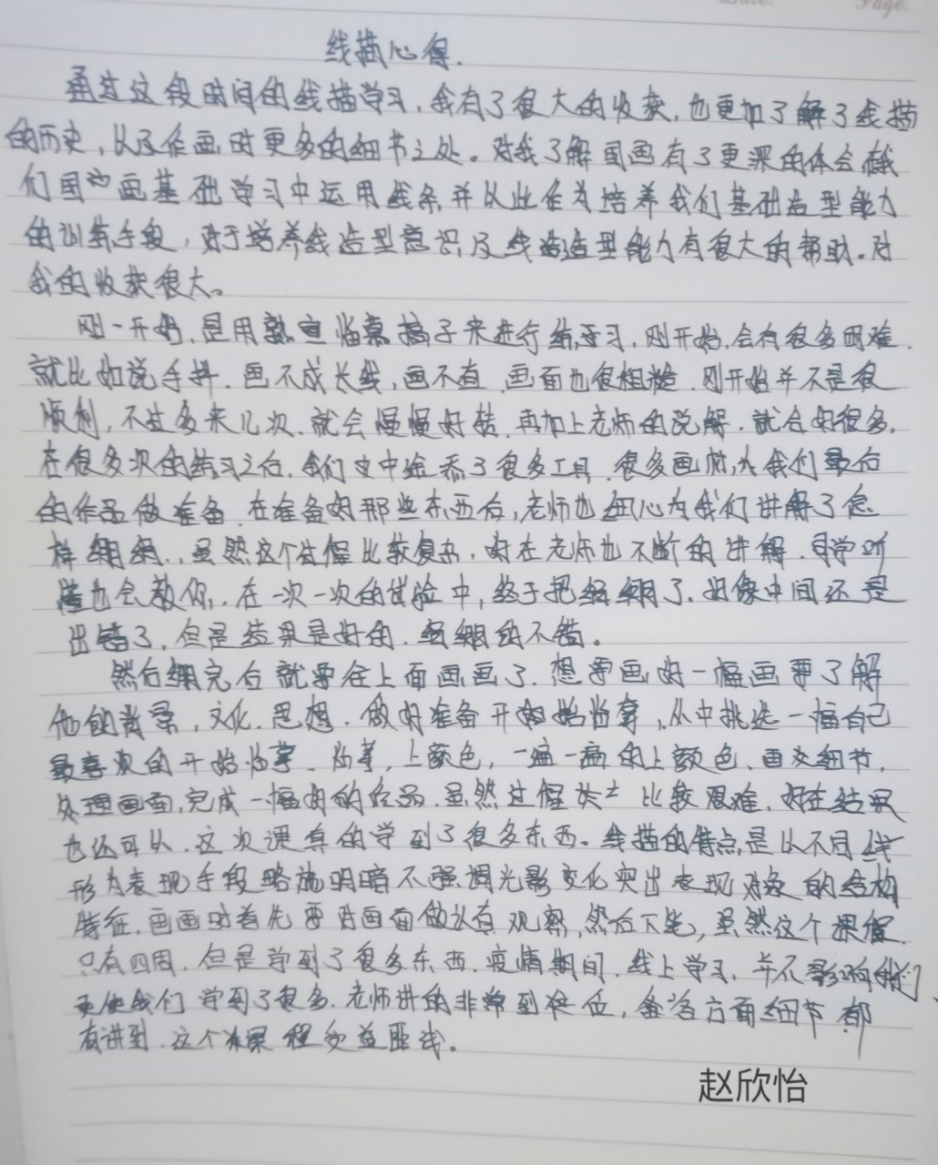 Date. Page.
线描心得.
通过这段时间的线描学习,我有了很大的收获,也更加了解了线描
的历史,以及作画时更多的细节之处。对我了解国画有了更深的体会
们国画基础学习中运用线条并以此作为培养我们基础造型能力
的训练手段,对于培养线造型意识及线造型能力有很大的帮助。对
我的收获很大。
刚一开始,是用熟宣临摹稿子来进行练习,刚开始,会有很多困难.
就比如说手抖.画不成长线,画不直,画面也很粗糙.刚开始并不是很
顺利,不过多来几次.就会慢慢好转.再加上老师的说解.就会好很多.
在很多次的练习之后.我们又中添了很多工具.很多画材,为我们最后
的作品做准备.在准备好那些东西后,老师也细心为我们讲解了怎
样绷绢.虽然这个过程比较复杂,好在老师也不断的讲解.同学听
懂也会教你,.在一次一次的试验中,终于把绢绷了.好像中间还是
出错了,但是结果是好的.绢绷的不错。
然后绷完后就要在上面画画了.想要画好一幅画要了解
他的背景,文化.思想.做好准备开始临摹,从中挑选一幅自己
最喜欢的开始临摹.临摹,上颜色,一遍一遍的上颜色.画交细节.
处理画面,完成一幅好的作品.虽然过程比较艰难.好在结果
也还可以.这次课真的学到了很多东西。线描的特点是以不同线
形为表现手段略施明暗不强调光影变化突出表现对象的结构
特征.画画时首先要对画面做认真观察,然后下笔,虽然这个课程.
只有四周.但是学到了很多东西.疫情期间.线上学习,并不影响我们、
更使我们学到了很多.老师讲的非常到位,各方面细节都
有讲到.这个课程受益匪浅。
赵欣怡